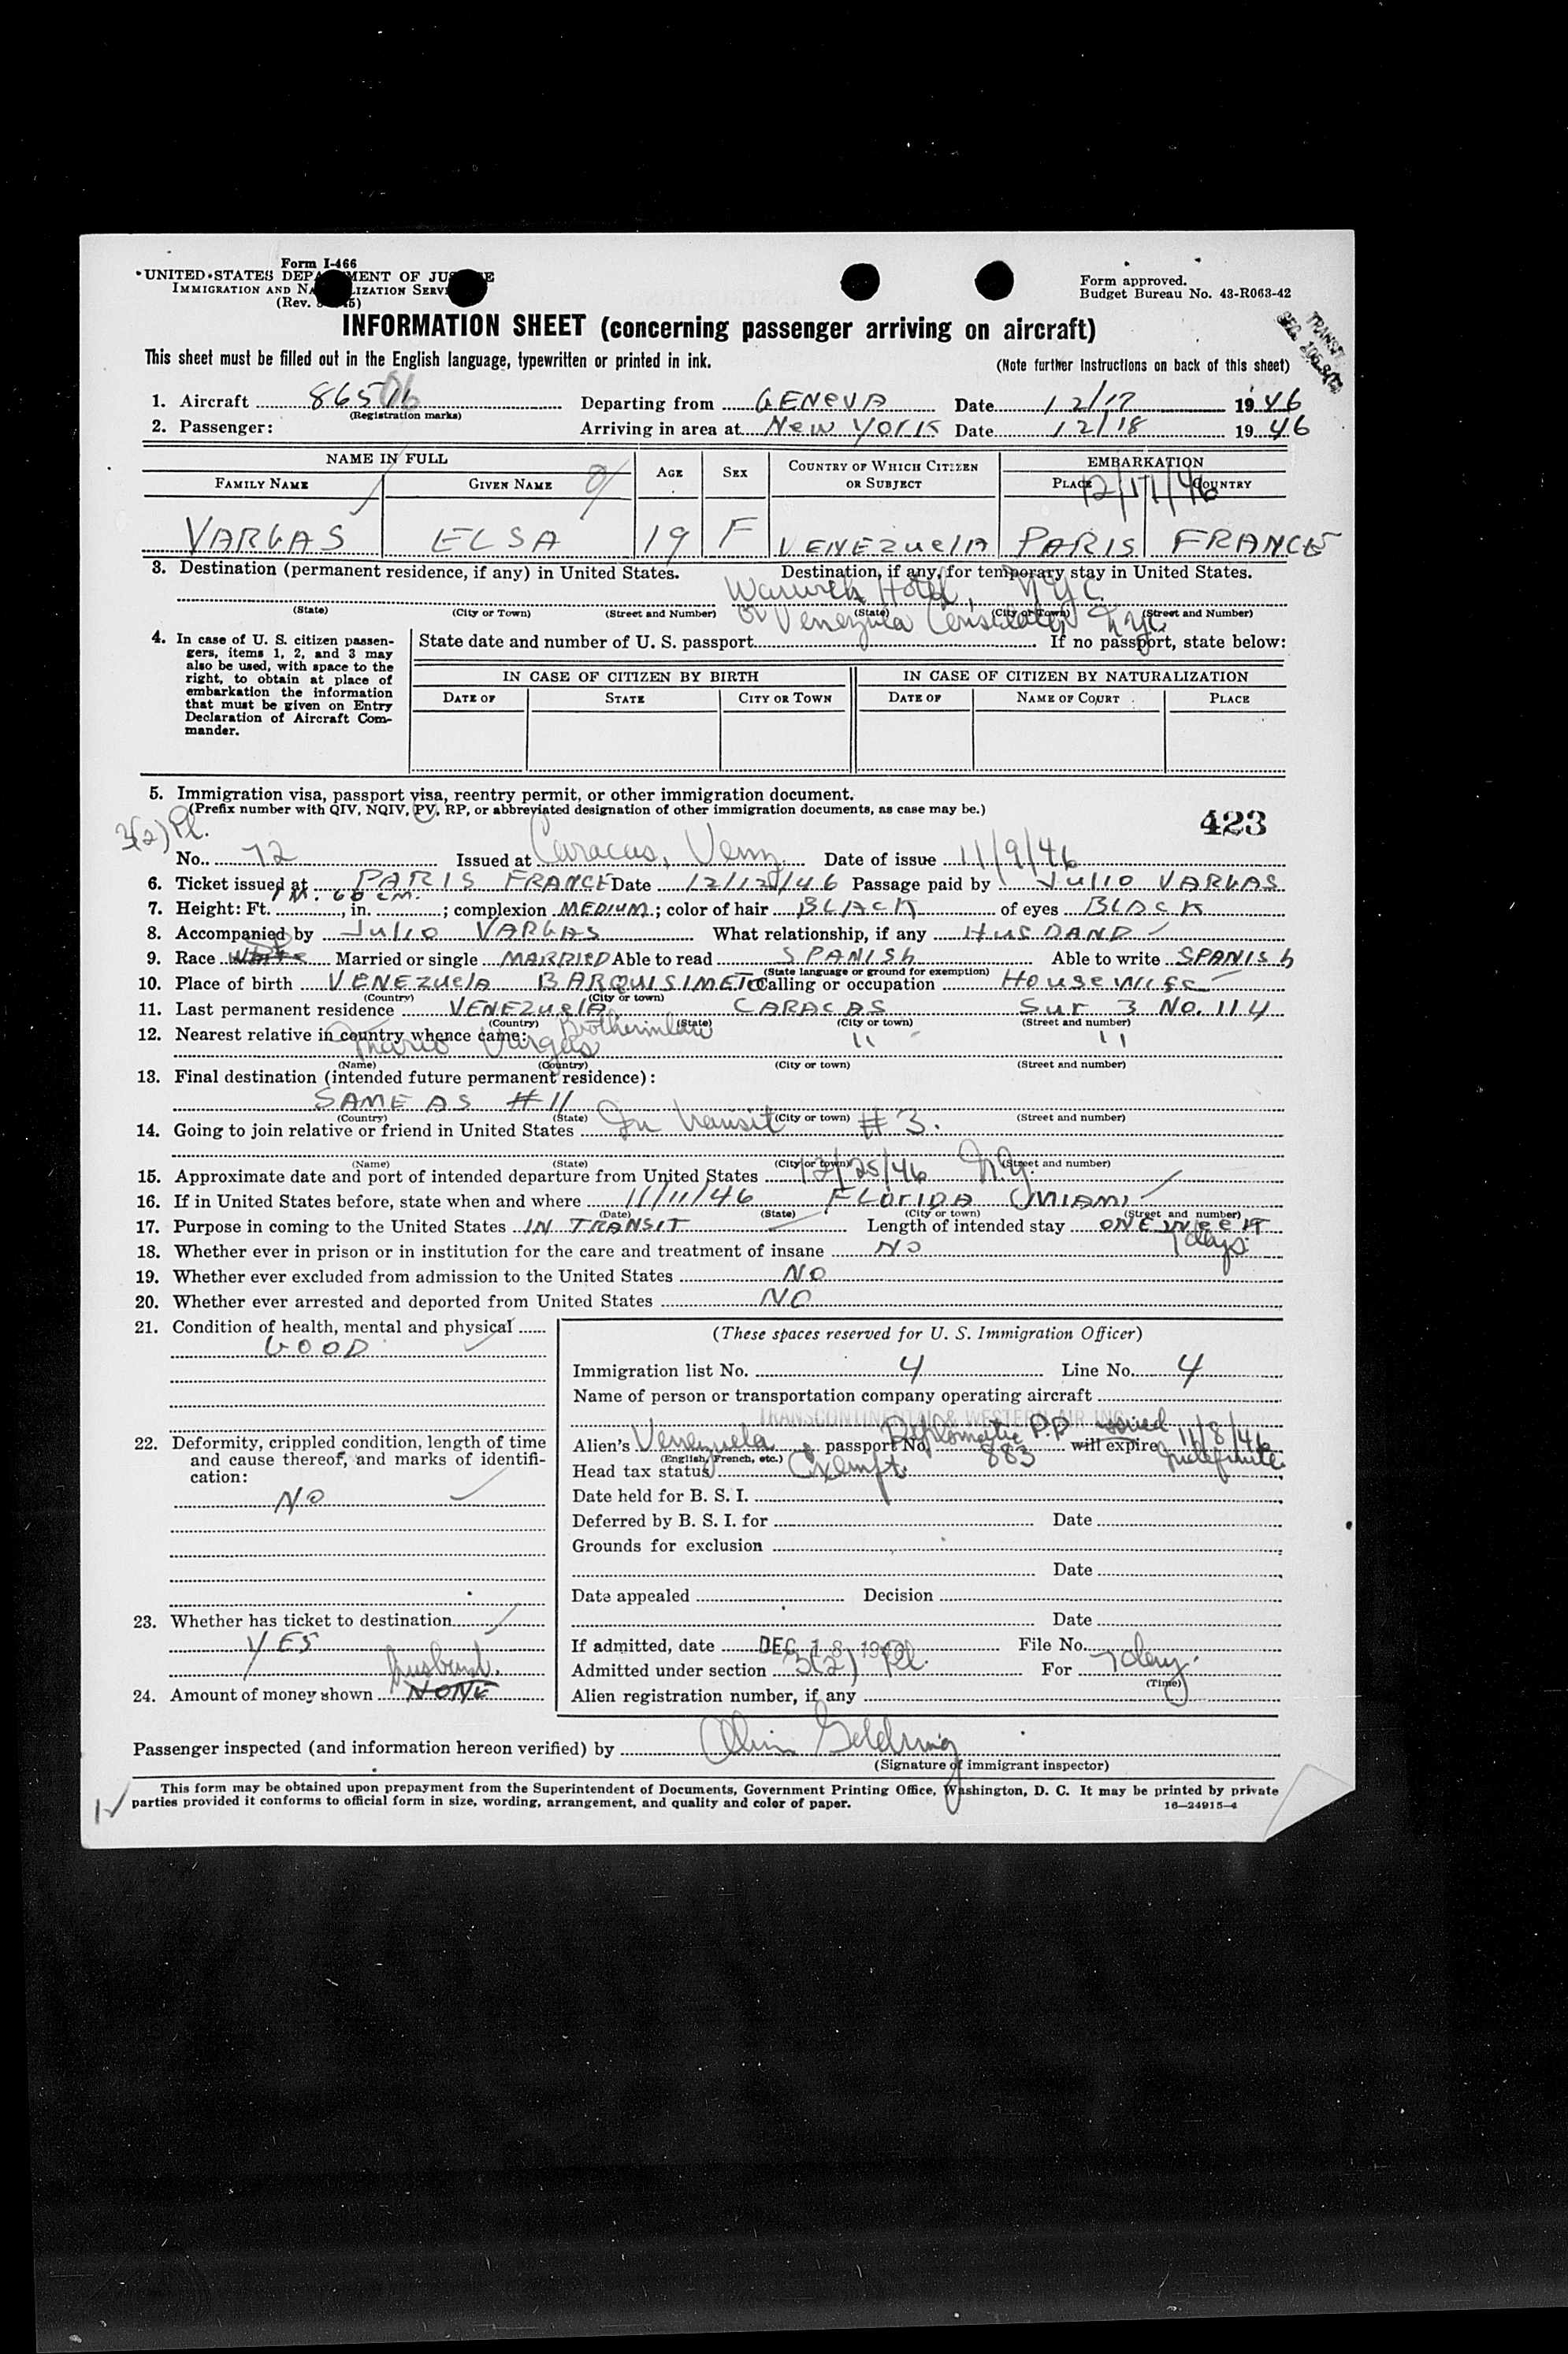 Form I-466
UNITED STATES DEPA MENT OF JUS E
IMMIGRATION AND NA LIZATION SERVI
(Rev. 5)
Form approved.
Budget Bureau No. 43-R063-42
INFORMATION SHEET (concerning passenger arriving on aircraft)
This sheet must be filled out in the English language, typewritten or printed in ink. (Note further instructions on back of this sheet)
TRANSIT
1. Aircraft 86506 Departing from GENEVA Date 12/17 1946
(Registration marks)
2. Passenger: Arriving in area at New YORK Date 12/18 1946
NAME IN FULL AGE SEX COUNTRY OF WHICH CITIZEN OR SUBJECT EMBARKATION
FAMILY NAME GIVEN NAME PLACE COUNTRY
12/17/46
VARGAS ELSA 19 F VENEZuelA PARIS FRANCE
3. Destination (permanent residence, if any) in United States. Destination, if any, for temporary stay in United States.
Warwick Hotel, NYC.
(State) (City or Town) (Street and Number) (State) (City or Town) (Street and Number)
or Venezula Consulate, NYC
4. In case of U. S. citizen passengers, items 1, 2, and 3 may also be used, with space to the right, to obtain at place of embarkation the information that must be given on Entry Declaration of Aircraft Commander.
State date and number of U. S. passport If no passport, state below:
IN CASE OF CITIZEN BY BIRTH IN CASE OF CITIZEN BY NATURALIZATION
DATE OF STATE CITY OR TOWN DATE OF NAME OF COURT PLACE
5. Immigration visa, passport visa, reentry permit, or other immigration document.
(Prefix number with QIV, NQIV, PV, RP, or abbreviated designation of other immigration documents, as case may be.)
423
3(2) Pl.
No. 72 Issued at Caracas, Venz. Date of issue 11/9/46
6. Ticket issued at PARIS FRANCE Date 12/12/46 Passage paid by Julio VARGAS
1 M. 60 cm.
7. Height: Ft. , in. ; complexion MEDIUM; color of hair BLACK of eyes BLACK
8. Accompanied by Julio VARGAS What relationship, if any HUSBAND
9. Race White Married or single MARRIED Able to read SPANISh Able to write SPANISh
(State language or ground for exemption)
10. Place of birth VENEZuelA BARQUISIMETO Calling or occupation Housewife
(Country) (City or town)
11. Last permanent residence VENEZuelA CARACAS Sur 3 No. 114
(Country) (State) (City or town) (Street and number)
12. Nearest relative in country whence came: Brotherinlaw
Mario Vargas " "
(Name) (Country) (City or town) (Street and number)
13. Final destination (intended future permanent residence):
SAME AS #11
(Country) (State) (City or town) (Street and number)
14. Going to join relative or friend in United States In transit #3.
(Name) (State) (City or town) (Street and number)
15. Approximate date and port of intended departure from United States 12/25/46 N.Y.
16. If in United States before, state when and where 11/11/46 FLORIDA MIAMI
(Date) (State) (City or town) (Street and number)
17. Purpose in coming to the United States IN TRANSIT Length of intended stay ONE Week
7 days
18. Whether ever in prison or in institution for the care and treatment of insane NO
19. Whether ever excluded from admission to the United States NO
20. Whether ever arrested and deported from United States NO
21. Condition of health, mental and physical
GOOD
22. Deformity, crippled condition, length of time and cause thereof, and marks of identification:
NO
23. Whether has ticket to destination
YES
husband.
24. Amount of money shown NONE
(These spaces reserved for U. S. Immigration Officer)
Immigration list No. 4 Line No. 4
Name of person or transportation company operating aircraft
TRANSCONTINENTAL & WESTERN AIR INC.
Diplomatic P.P issued 11/8/46
Alien's Venezuela passport No. 883 will expire Indefinite
(English, French, etc.)
Head tax status Exempt.
Date held for B. S. I.
Deferred by B. S. I. for Date
Grounds for exclusion
Date
Date appealed Decision
Date
If admitted, date DEC 18 1946 File No.
Admitted under section 3(2) Pl. For 7 days.
(Time)
Alien registration number, if any
Passenger inspected (and information hereon verified) by
(Signature of immigrant inspector)
This form may be obtained upon prepayment from the Superintendent of Documents, Government Printing Office, Washington, D. C. It may be printed by private
parties provided it conforms to official form in size, wording, arrangement, and quality and color of paper. 16—24915-4